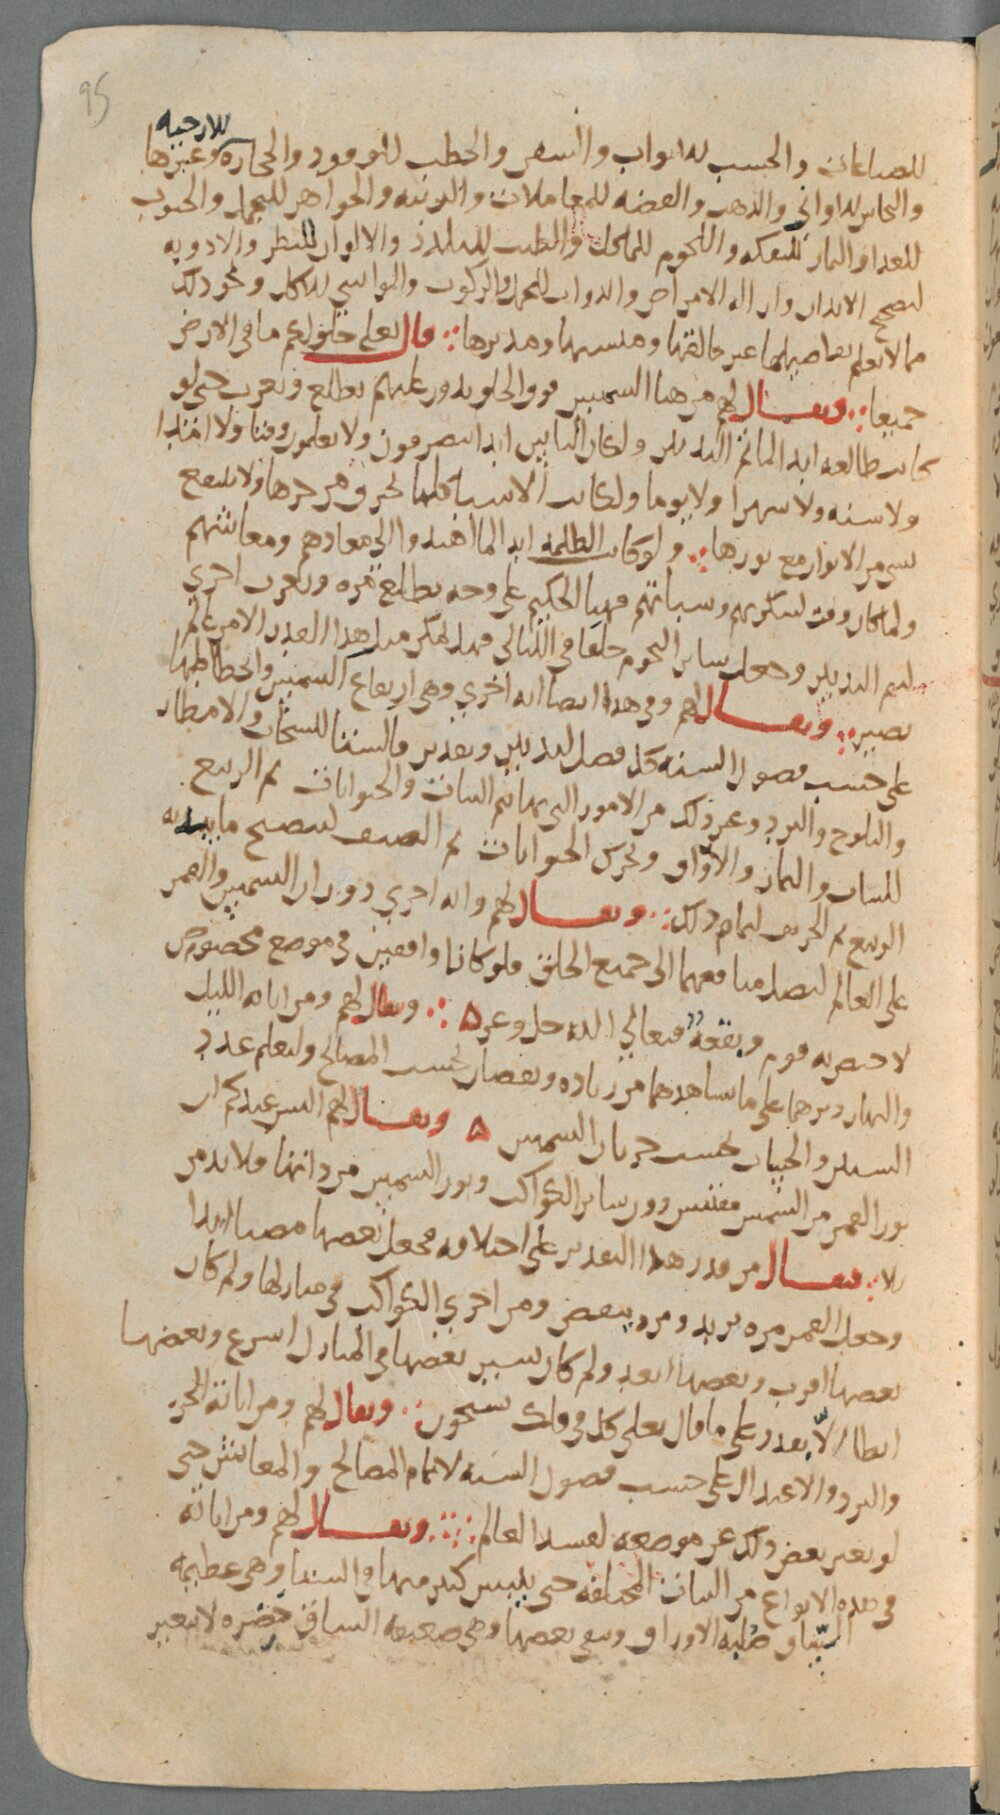 95
للارحيه
للصناعات والخشب للابواب والسفن والحطب للوقود والحجاره وغيرها
والنحاس للاواني والذهب والفضه للمعاملات والزينه والجواهر للتجمل والحبوب
للغذا والثمار للتفكه واللحوم للماكل والطيب للتلذذ والالوان للنظر والادويه
لتصحيح الابدان وازاله الامراض والدواب للحمل والركوب والمواشي للاكل ونحو ذلك
مما لا يعلم تفاصيلها غير خالقها ومنشيها ومدبرها ∴ قال تعالى خلق لكم ما في الارض
جميعا ∴ ويقال لهم من هيا الشمس فوق الخلق يدور عليهم تطلع وتغرب حتى لو
كانت طالعه ابدا لما تم التدبير ولكان الناس ابدا ينصرفون ولا يعلمون وقتا ولا امتدا
ولا سنه ولا شهرا ولا يوما ولكانت الاشيا كلها تحرق من حرها ولا ينتفع
بشي من الانوار مع نورها ∴ ولو كانت الظلمه ابدا لما اهتدوا الى معادهم ومعاشهم
ولما كان وقت لسكونهم وسباتهم فهيا الحكيم على وجه تطلع مره وتغرب اخرى
ليتم التدبير وجعل ساير النجوم خلفا في الليالي فهل يمكن مثل هذا القدر الا من عالم
بصير ∴ ويقال لهم وفي هذا ايضا ايه اخرى وهي ارتفاع الشمس وانحطاطها
على حسب فصول السنه كل فصل لتدبير وتقدير فالشتا للسحاب والامطار
والثلوج والبرد وغير ذلك من الامور التي بها يتم النبات والحيوانات ثم الربيع
للنبات والثمار والاوراق وتحرك الحيوانات ثم الصيف لينضج ما يبديه
الربيع ثم الخريف لتمام ذلك ∴ ويقال لهم وايه اخرى دوران الشمس والقمر
على العالم ليصل منافعهما الى جميع الخلق فلو كانا واقفين في موضع مخصوص
لاختص به قوم وبقعة فتعالى الله جل وعز ه ∴ ويقال لهم ومن اياته الليل
والنهار دبرهما على ما شاهدهما من زياده ونقصان بحسب المصالح وليعلم عدد
السنين والحساب بحسب جريان الشمس ه ويقال لهم اليس عندكم ان
نور القمر من الشمس مقتبس دون ساير الكواكب ونور الشمس من ذاتها فلا بد من
بلا ∴ فيقال من قدر هذا التقدير على اختلافه فجعل بعضها مضيا ابدا
وجعل القمر مره يزيد ومره ينقص ومن اجرى الكواكب في منازلها ولم كان
بعضها اقرب وبعضها ابعد ولم كان سير بعضها في المنازل اسرع وبعضها
ابطا الّا بقدر على ما قال تعالى كل في فلك يسبحون ∴ ويقال لهم ومن اياته الحر
والبرد والاعتدال على حسب فصول السنه لاتمام المصالح والمعايش حتى
لو تغير بعض ذلك عن موضعه لفسد العالم ∴ ويقال لهم ومن اياته
في هذه الانواع من النبات المختلفه حتى ييبس كثير منها في الشتا وهي عظيمه
السّاق صلبه الاوراق ويبقى بعضها وهي ضعيفه الساق خضره لا يتغير